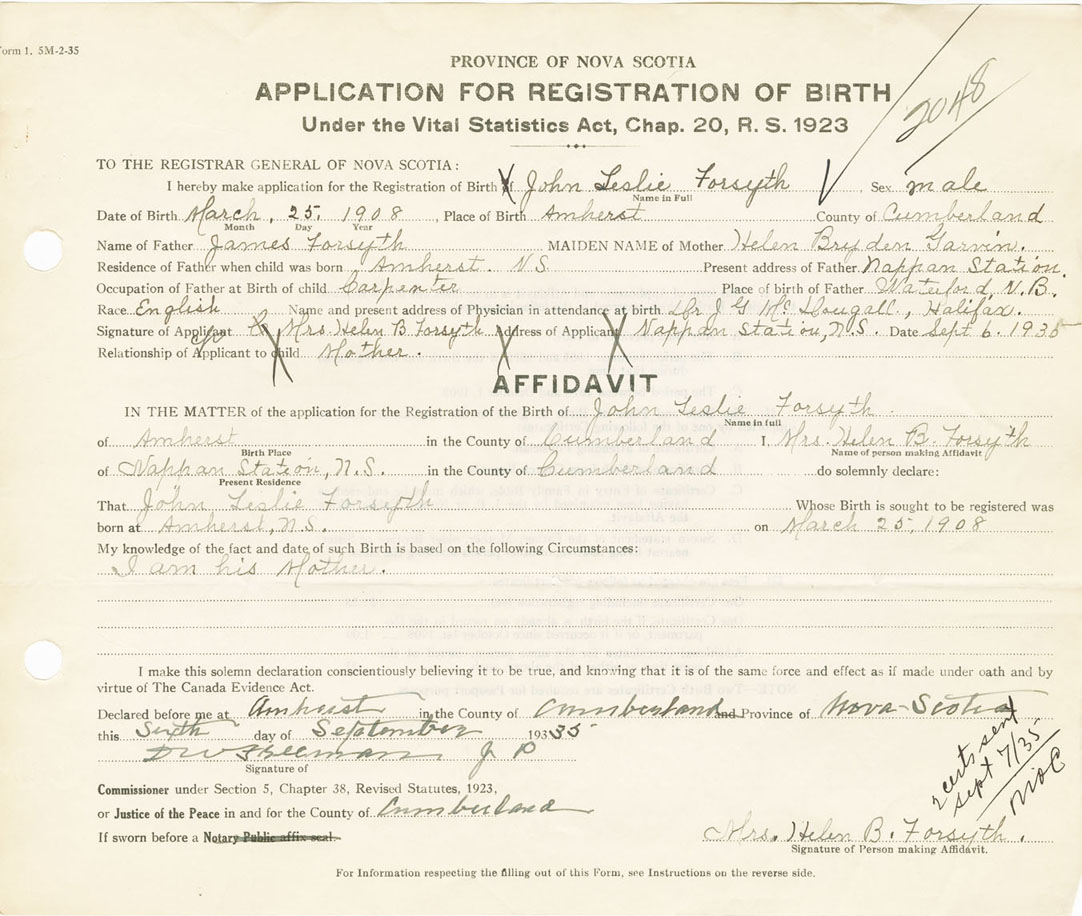 Form 1. 5M-2-35
PROVINCE OF NOVA SCOTIA
APPLICATION FOR REGISTRATION OF BIRTH
Under the Vital Statistics Act, Chap. 20, R. S. 1923
2048
TO THE REGISTRAR GENERAL OF NOVA SCOTIA:
I hereby make application for the Registration of Birth of John Leslie Forsyth Sex male
Name in Full
Date of Birth March, 25, 1908, Place of Birth Amherst County of Cumberland
Month Day Year
Name of Father James Forsyth MAIDEN NAME of Mother Helen Bryden Garvin.
Residence of Father when child was born Amherst. N.S. Present address of Father Nappan Station.
Occupation of Father at Birth of child Carpenter Place of birth of Father Waterford, N.B.
Race English Name and present address of Physician in attendance at birth Dr J G McDougall, Halifax.
Signature of Applicant Mrs Helen B Forsyth Address of Applicant Nappan Station, N.S. Date Sept 6. 1935
Relationship of Applicant to child Mother.
AFFIDAVIT
IN THE MATTER of the application for the Registration of the Birth of John Leslie Forsyth
Name in full
of Amherst in the County of Cumberland I, Mrs. Helen B. Forsyth
Birth Place Name of person making Affidavit
of Nappan Station, N.S. in the County of Cumberland do solemnly declare:
Present Residence
That John Leslie Forsyth Whose Birth is sought to be registered was
born at Amherst, N.S. on March 25, 1908
My knowledge of the fact and date of such Birth is based on the following Circumstances:
I am his Mother.
I make this solemn declaration conscientiously believing it to be true, and knowing that it is of the same force and effect as if made under oath and by
virtue of The Canada Evidence Act.
Declared before me at Amherst in the County of Cumberland and Province of Nova-Scotia
this Sixth day of September 193335
D W Freeman J P
Signature of
Commissioner under Section 5, Chapter 38, Revised Statutes, 1923,
or Justice of the Peace in and for the County of Cumberland
If sworn before a Notary Public affix seal.
2 certs sent
Sept 7/35
Mrs. Helen B. Forsyth.
Signature of Person making Affidavit.
For Information respecting the filling out of this Form, see Instructions on the reverse side.